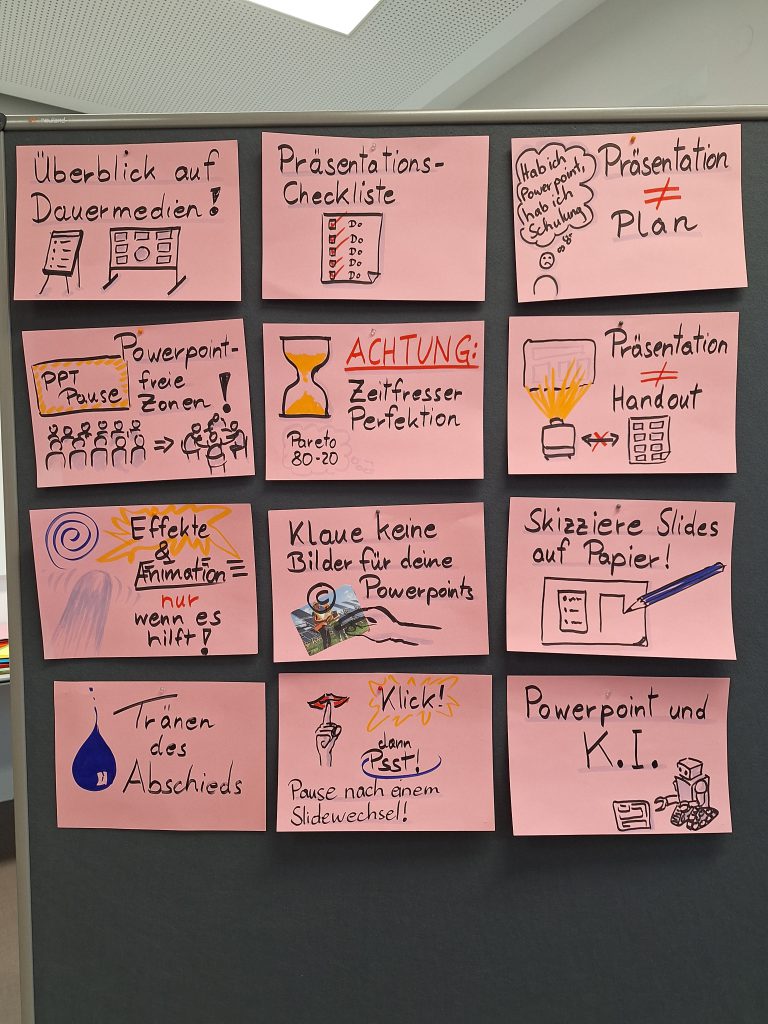 neuland
Überblick auf
Dauermedien!
Präsentations-
Checkliste
Do
Do
Do
Do
Do
Hab ich
Powerpoint,
hab ich
Schulung
Präsentation
≠
Plan
PPT
Pause
Powerpoint-
freie
Zonen!
ACHTUNG:
Zeitfresser
Perfektion
Pareto
80-20
Präsentation
≠
Handout
Effekte
&
Animation
nur
wenn es
hilft!
Klaue keine
Bilder für deine
Powerpoints
©
Skizziere Slides
auf Papier!
Tränen
des
Abschieds
Klick!
dann
Psst!
Pause nach einem
Slidewechsel!
Powerpoint und
K.I.